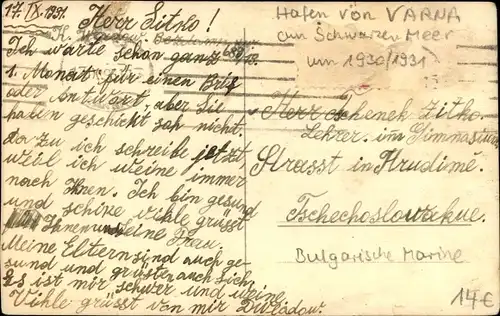 17. IX. 1931.
Herr Zitko!
Ich warte schon ganz
1. Monat für einen Brif
oder Antwort, aber Sie
haben geschickt soh nicht.
da zu ich schreibe jetzt
weil ich weine immer
nach Ihnen. Ich bin gesund
und schike vihle grüsst
Ihnen und eine Frau.
Meine Eltern sind auch ge-
sund und grüsten auch Sich.
Es ist mir schwer und weine
Vihle grüsst von mir
Hafen von VARNA
am Schwarzen Meer
um 1930/1931
Herr Tschenek Zitko
Lehrer im Gimnastum
Strasst in Hrudimě.
Tschechoslowakue.
Bulgarische Marine
14€